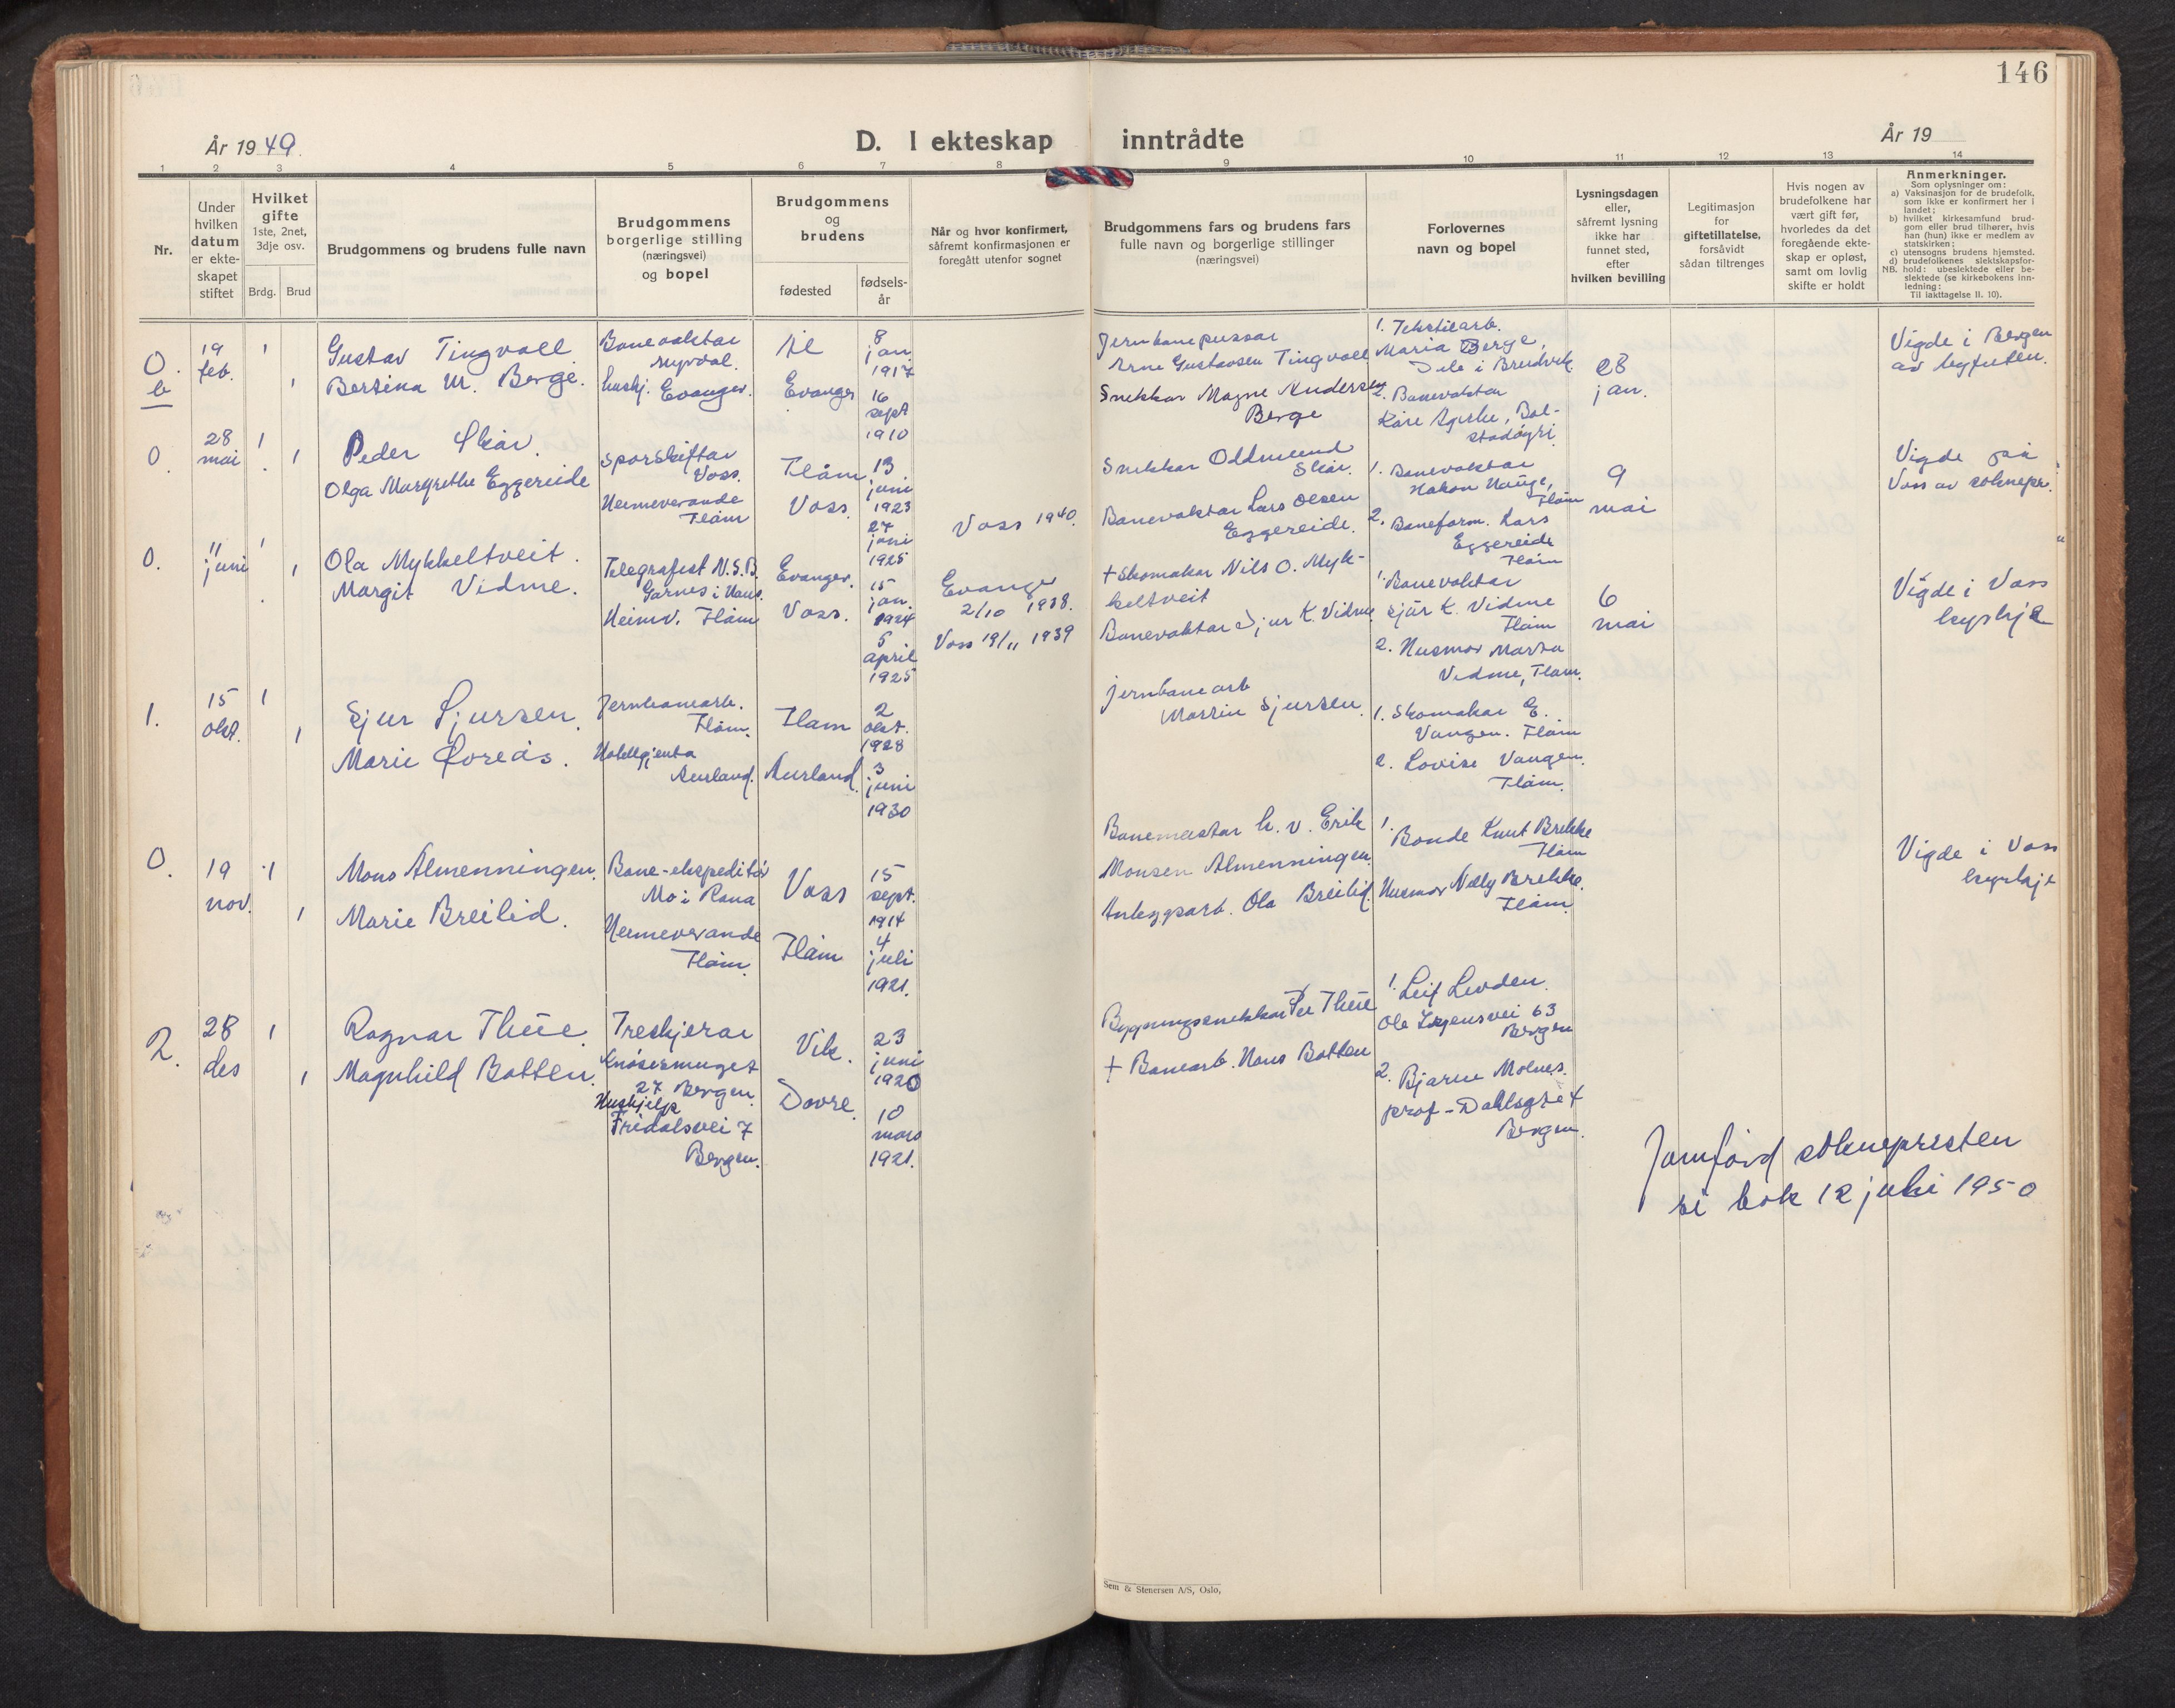 146
År 1949.
D. I ekteskap inntrådte
År 19
1 2 3 4 5 6 7 8 9 10 11 12 13 14
Nr.
Under
hvilken
datum
er ekte-
skapet
stiftet
Hvilket
gifte
1ste, 2net,
3dje osv.
Brdg. Brud
Brudgommens og brudens fulle navn
Brudgommens
borgerlige stilling
(næringsvei)
og bopel
Brudgommens
og
brudens
fødested
fødsels-
år
Når og hvor konfirmert,
såfremt konfirmasjonen er
foregått utenfor sognet
Brudgommens fars og brudens fars
fulle navn og borgerlige stillinger
(næringsvei)
Forlovernes
navn og bopel
Lysningsdagen
eller,
såfremt lysning
ikke har
funnet sted,
efter
hvilken bevilling
Legitimasjon
for
giftetillatelse,
forsåvidt
sådan tiltrenges
Hvis nogen av
brudefolkene har
vært gift før,
hvorledes da det
foregående ekte-
skap er opløst,
samt om lovlig
skifte er holdt
Anmerkninger.
Som oplysninger om:
a) Vaksinasjon for de brudefolk,
som ikke er konfirmert her i
landet;
b) hvilket kirkesamfund brud-
gom eller brud tilhører, hvis
han (hun) ikke er medlem av
statskirken;
c) utensogns brudens hjemsted.
d) brudefolkenes slektskapsfor-
NB. hold: ubeslektede eller be-
slektede (se kirkebokens inn-
ledning:
Til iakttagelse II. 10).
O.
b
19
feb.
1
1
Gustav Tingvoll
Bersina M. Berge.
Banevaktar
Myrdal.
hushj. Evanger.
Ål
Evanger
8
jan.
1917
16
sept
1910
Jernbanepussar
Arne Gustavsen Tingvoll
Snekkar Magne Andersen
Berge
1. Tekstilarb.
Maria Berge,
Dale i Bruvik.
2. Banevaktar
Kåre
stadøyri
28
jan.
Vigde i Bergen
av byfuten.
O.
28
mai
1
1
Peder Skår.
Olga Margrethe Eggereide
Sporskiftar
Voss.
Heimeverande
Flåm
Flåm
Voss.
13
juni
1923
27
juni
1925
Voss 1940.
Snekkar Oddmund
Skår.
Banevaktar Lars Olsen
Eggereide.
1. Banevaktar
Håkon Hauge,
Flåm
2. Baneform. Lars
Eggereide
Flåm
9
mai
Vigde på
Voss av soknepr.
O.
11
juni
1
1
Ola Mykkeltveit.
Margit Vidme.
Telegrafist N.S.B.
Garnes i Haus.
Heimv. Flåm
Evanger.
Voss.
15
jan.
1924
5
april
1925
Evanger
2/10 1938.
Voss 19/11 1939
+ Skomakar Nils O. Myk-
keltveit
Banevaktar Sjur K. Vidme
1. Banevaktar
Sjur K. Vidme
Flåm
2. Husmor Marta
Vidme, Flåm.
6
mai
Vigde i Voss
kyrkje
1.
15
okt.
1
1
Sjur Sjursen.
Marie Øvreås.
Jernbanearb.
Flåm.
Hotellgjenta
Aurland.
Flåm
Aurland.
2
okt.
1928
3
juni
1930
Jernbanearb
Martin Sjursen
1. Skomakar E.
Vangen. Flåm
2. Lovise Vangen.
Flåm.
O.
19
nov.
1
1
Mons Almenningen.
Marie Breilid.
Bane-ekspeditør
Mo i Rana
Heimeverande
Flåm.
Voss
Flåm
15
sept.
1914
4
juli
1921.
Banemeistar h.v. Erik
Monsen Almenningen.
Anleggsarb. Ola Breilid.
1.
Bonde Knut Brekke
Flåm
Husmor Nelly Brekke.
Flåm.
Vigde i Voss
kyrkje
2.
28
des
1
1
Ragnar Thue.
Magnhild Botten.
Treskjerar
Knøsesmuget
27 Bergen.
Hushjelp
Fridalsvei 7
Bergen.
Vik.
Dovre.
23
juni
1920
10
mars
1921.
Bygningssnekkar Per Thue
+ Banearb. Hans Botten
1. Leif Levden.
Ole Irgensvei 63
Bergen
2. Bjarne Molnes.
prof-Dahlsgt
Bergen.
Jamførd soknepresten
si bok 12 juli 1950
Sem & Stenersen A/S, Oslo,